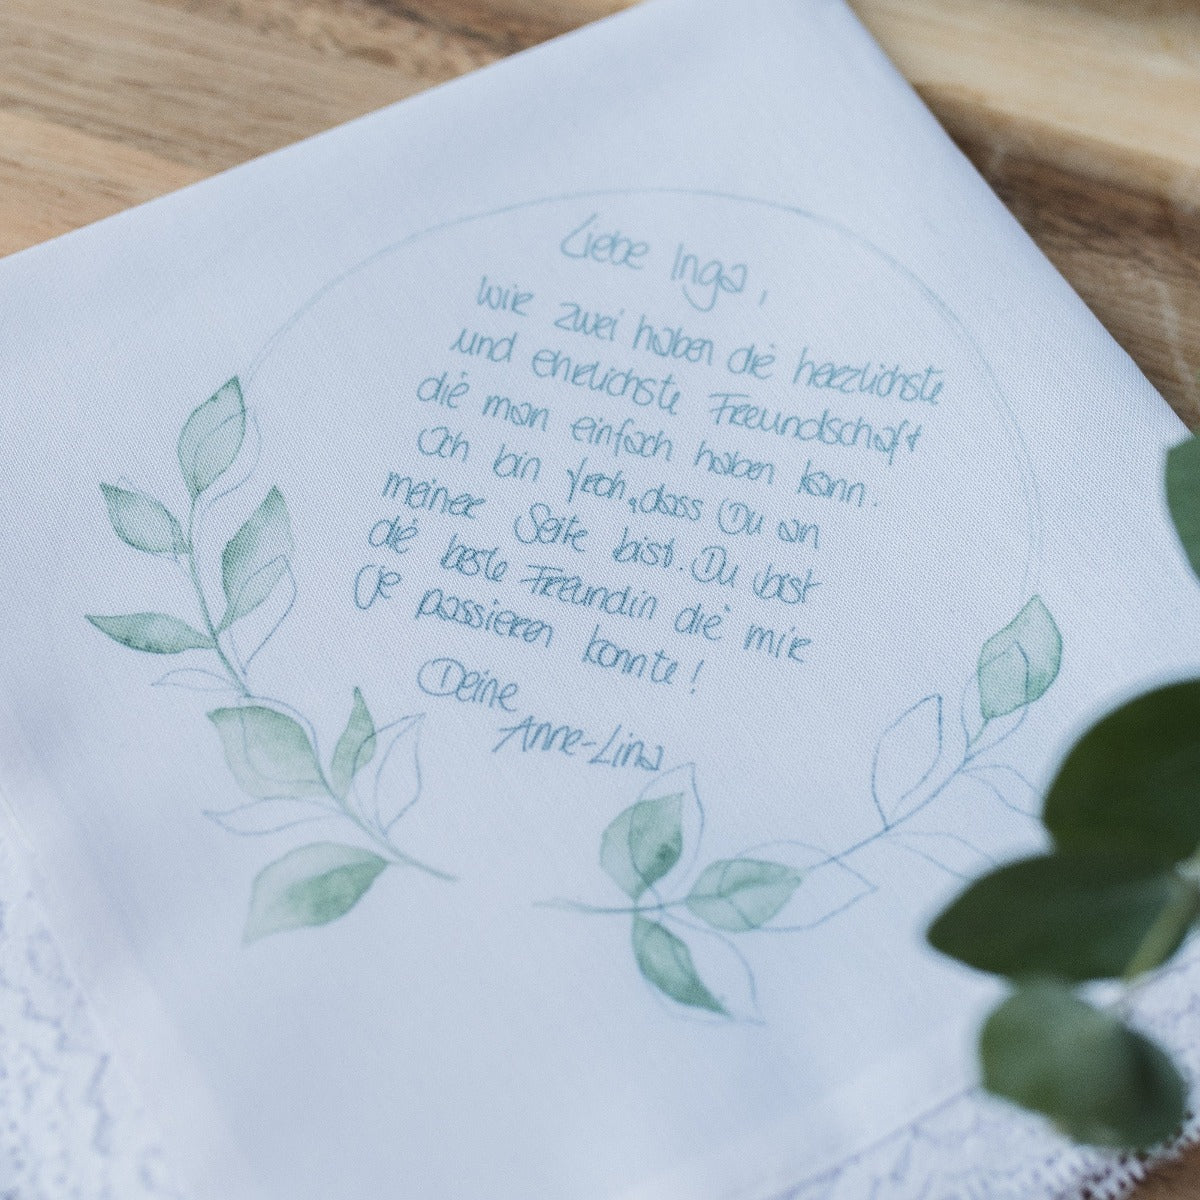 Liebe Inga,
wir zwei haben die herzlichste
und ehrlichste Freundschaft
die man einfach haben kann.
Ich bin froh, dass Du an
meiner Seite bist. Du bist
die beste Freundin die mir
je passieren konnte!
Deine
Anne-Lina